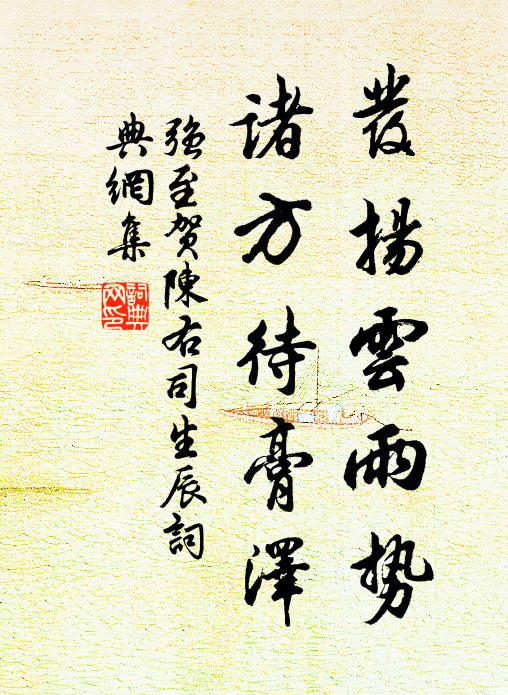 發揚雲雨勢
諸方待膏澤
強至賀陳右司生辰詞
典網集
詞典網印